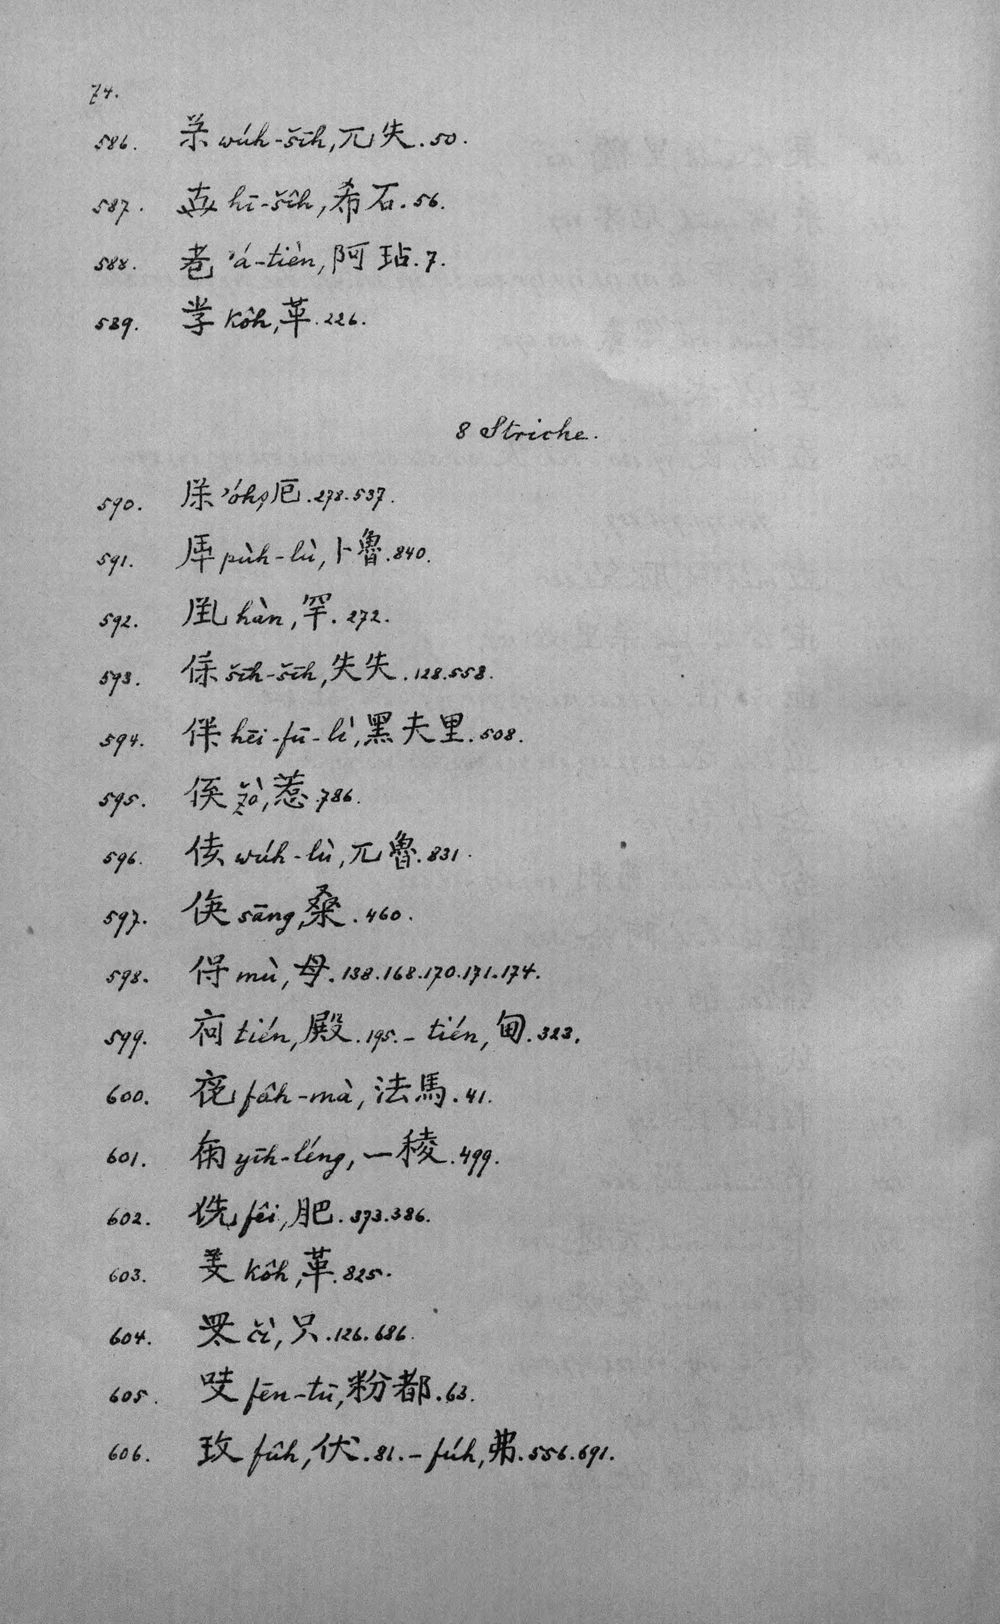 74.
586. wúh-šīh, 兀失. 50.
587. hī-šîh, 希石. 56.
588. 'á-tièn, 阿玷. 7.
589. kôh, 革. 226.
8 Striche.
590. 'óh, 厄. 278. 537.
591. pùh-lù, 卜魯. 840.
592. hàn, 罕. 272.
593. šīh-šīh, 失失. 128. 558.
594. hēi-fū-lì, 黑夫里. 508.
595. 惹. 786.
596. wúh-lù, 兀魯. 831.
597. sāng, 桑. 460.
598. mù, 母. 138. 168. 170. 171. 174.
599. tién, 殿. 195. – tién, 甸. 323.
600. fâh-mà, 法馬. 41.
601. yīh-léng, 一稜. 499.
602. fêi, 肥. 373. 386.
603. kôh, 革. 825.
604. čì, 只. 126. 686.
605. fēn-tū, 粉都. 63.
606. fûh, 伏. 81. – fúh, 弗. 556. 691.